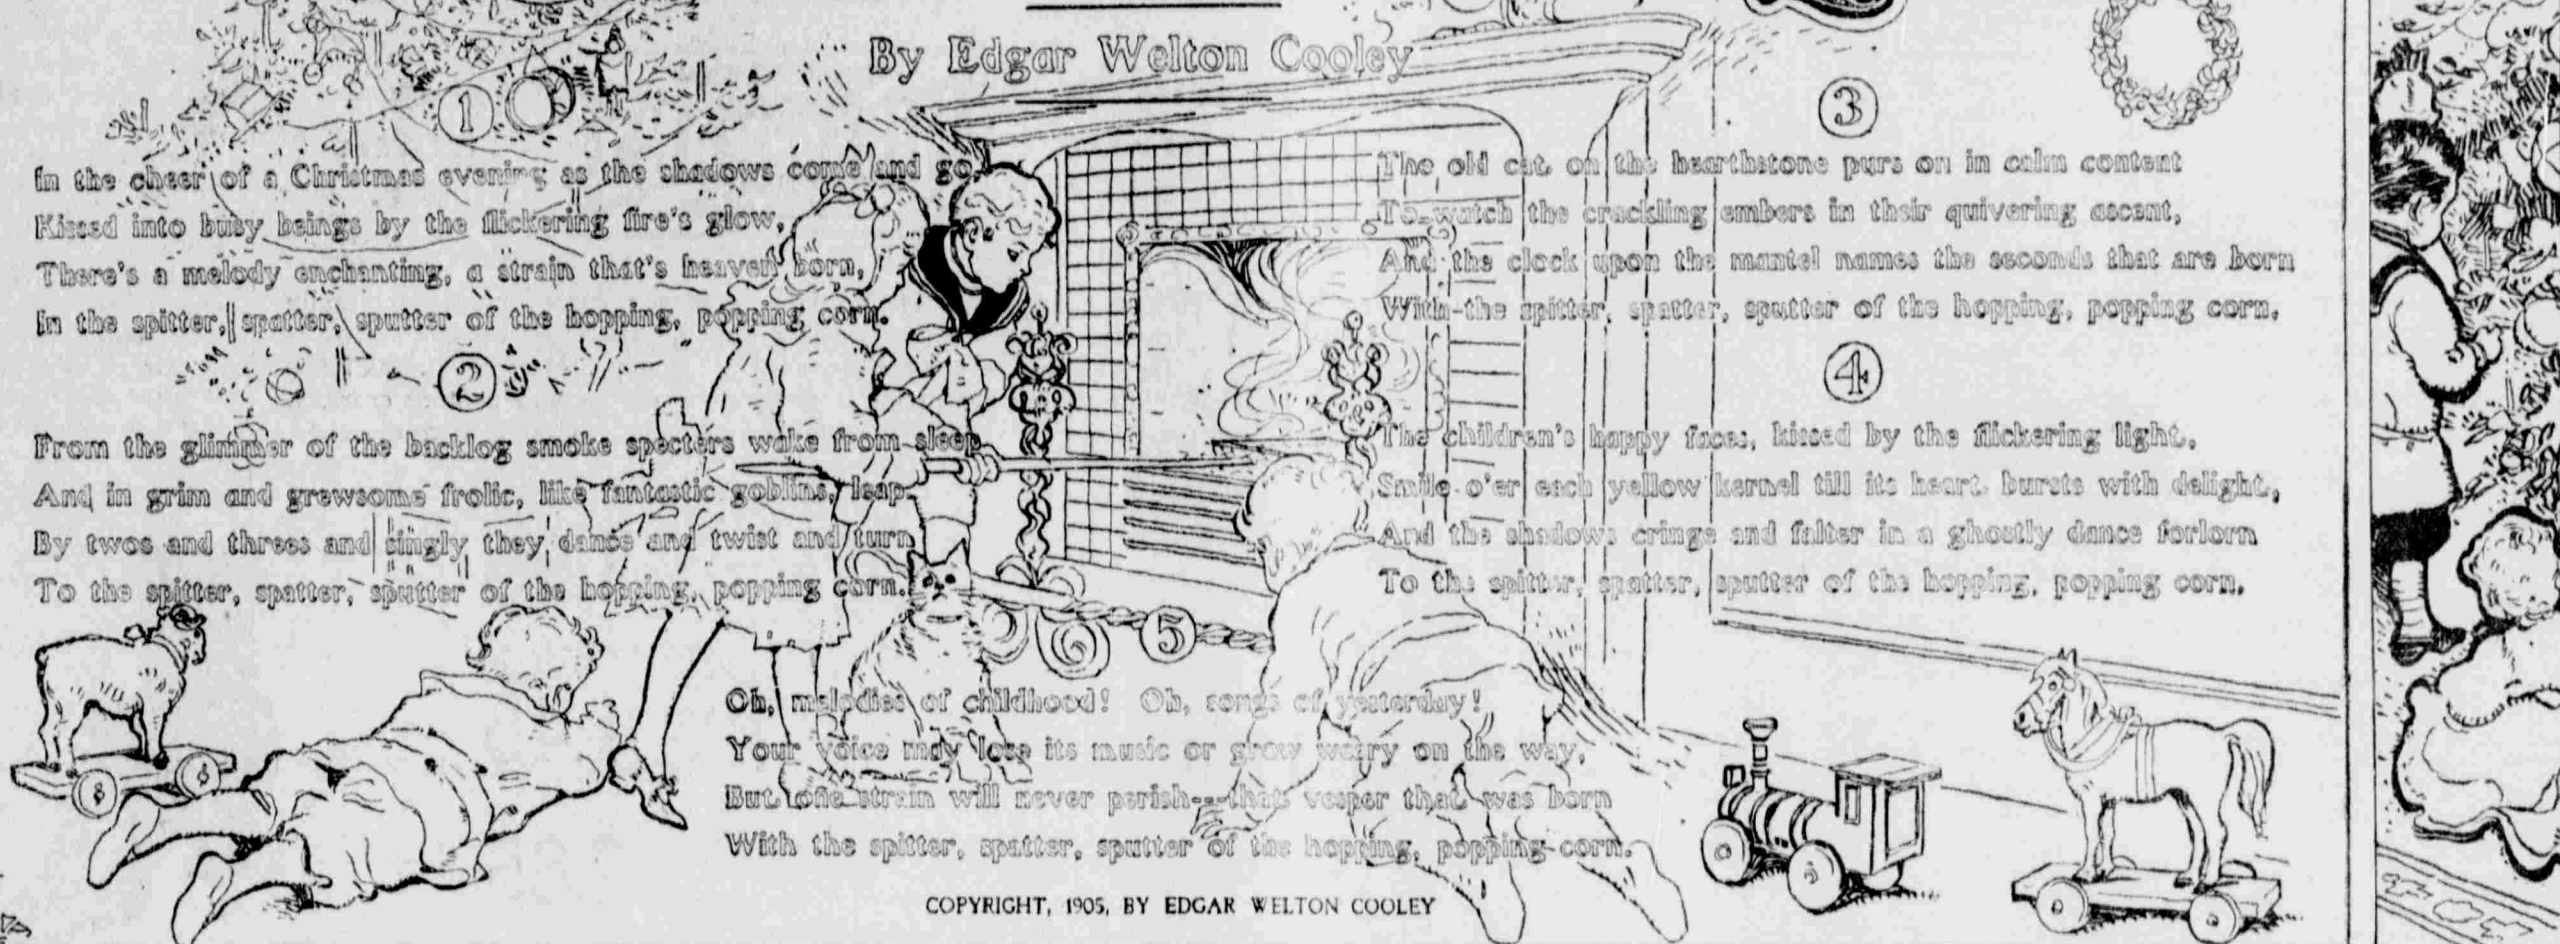 By Edgar Welton Cooley
1
In the cheer of a Christmas evening as the shadows come and go,
Kissed into busy beings by the flickering fire's glow,
There's a melody enchanting, a strain that's heaven born,
In the spitter, spatter, sputter of the hopping, popping corn.
2
From the glimmer of the backlog smoke specters wake from sleep
And in grim and grewsome frolic, like fantastic goblins, leap.
By twos and threes and singly they dance and twist and turn
To the spitter, spatter, sputter of the hopping, popping corn.
3
The old cat on the hearthstone purs on in calm content
To watch the crackling embers in their quivering ascent,
And the clock upon the mantel names the seconds that are born
With the spitter, spatter, sputter of the hopping, popping corn.
4
The children's happy faces, kissed by the flickering light,
Smile o'er each yellow kernel till its heart bursts with delight,
And the shadows cringe and falter in a ghostly dance forlorn
To the spitter, spatter, sputter of the hopping, popping corn.
5
Oh, melodies of childhood! Oh, songs of yesterday!
Your voice may lose its music or grow weary on the way,
But one strain will never perish---that vesper that was born
With the spitter, spatter, sputter of the hopping, popping corn.
COPYRIGHT, 1905, BY EDGAR WELTON COOLEY